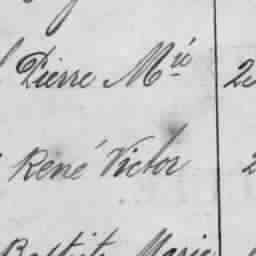 Pierre Mié 2
René Victor 2
Baptiste Marie